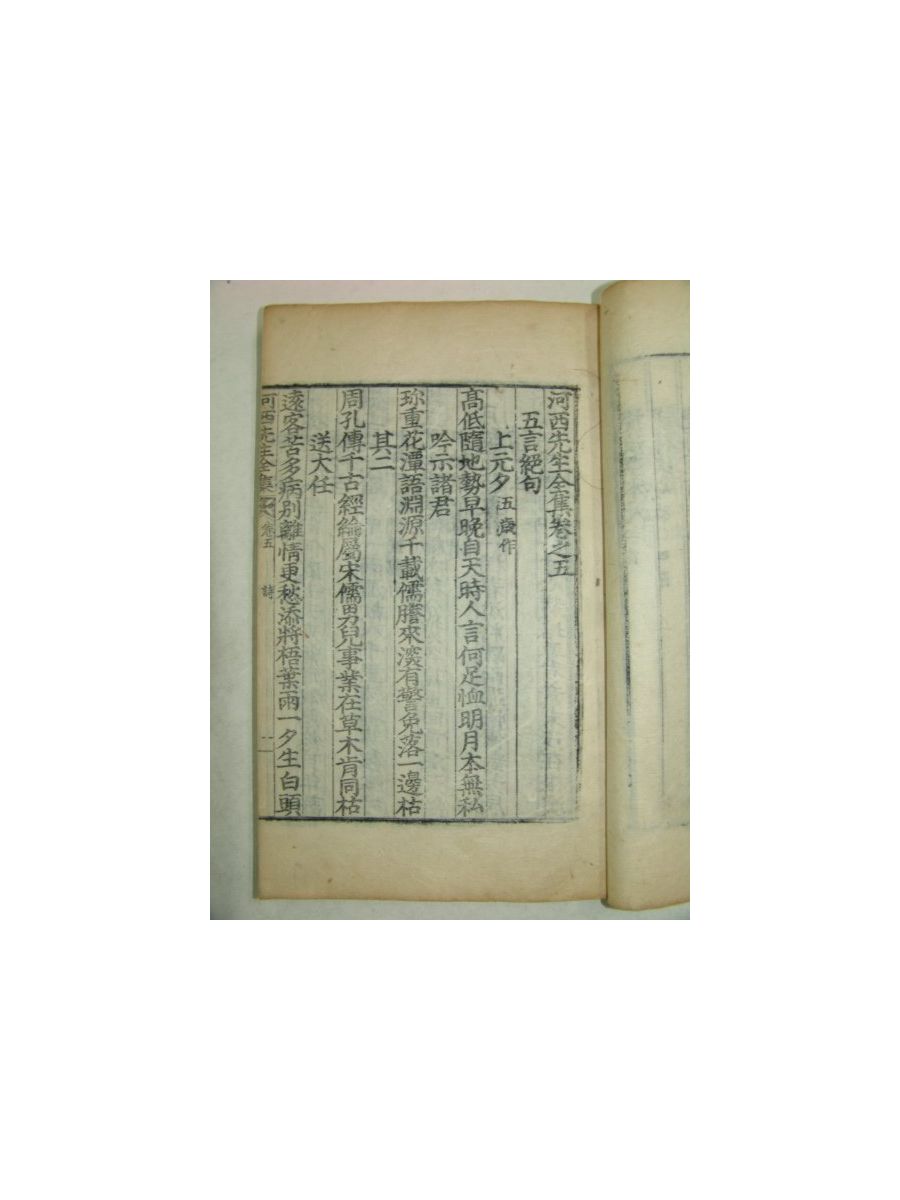 河西先生全集卷之五
五言絕句
上元夕 五歲作
高低隨地勢早晚自天時人言何足恤明月本無私
吟示諸君
珎重花潭語淵源千載儒膽來深有警免落一邊枯
其二
周孔傳千古經綸屬宋儒男兒事業在草木肯同枯
送大任
遠客苦多病別離情更愁添將梧葉雨一夕生白頭
河西先生全集 卷五 詩 一